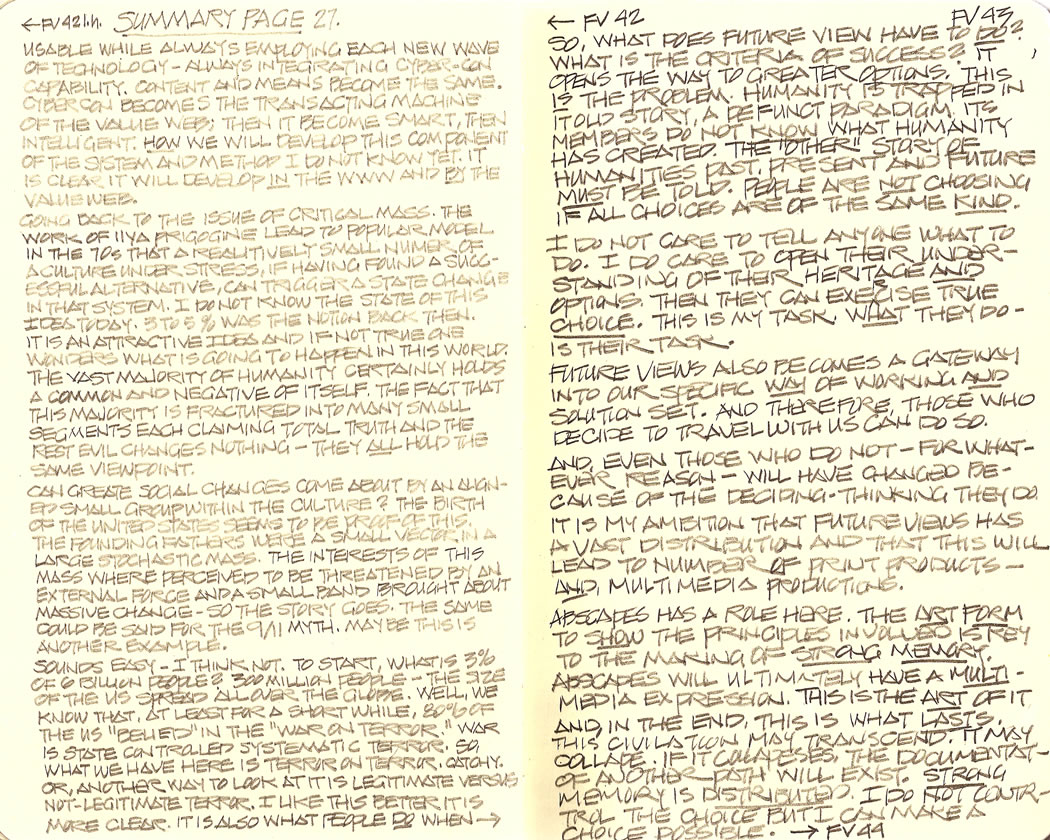 ← FV 42 l.h. SUMMARY PAGE 27.
USABLE WHILE ALWAYS EMPLOYING EACH NEW WAVE
OF TECHNOLOGY - ALWAYS INTEGRATING CYBER-CON
CAPABILITY. CONTENT AND MEANS BECOME THE SAME.
CYBERCON BECOMES THE TRANSACTING MACHINE
OF THE VALUE WEB; THEN IT BECOME SMART, THEN
INTELLIGENT. HOW WE WILL DEVELOP THIS COMPONENT
OF THE SYSTEM AND METHOD I DO NOT KNOW YET. IT
IS CLEAR IT WILL DEVELOP IN THE WWW AND BY THE
VALUE WEB.
GOING BACK TO THE ISSUE OF CRITICAL MASS. THE
WORK OF ILYA PRIGOGINE LEAD TO POPULAR MODEL
IN THE 70s THAT A REALITIVELY SMALL NUMER OF
A CULTURE UNDER STRESS, IF HAVING FOUND A SUCC-
ESSFUL ALTERNATIVE, CAN TRIGGER A STATE CHANGE
IN THAT SYSTEM. I DO NOT KNOW THE STATE OF THIS
IDEA TODAY. 3 TO 5 % WAS THE NOTION BACK THEN.
IT IS AN ATTRACTIVE IDEA AND IF NOT TRUE ONE
WONDERS WHAT IS GOING TO HAPPEN IN THIS WORLD.
THE VAST MAJORITY OF HUMANITY CERTAINLY HOLDS
A COMMON AND NEGATIVE OF ITSELF. THE FACT THAT
THIS MAJORITY IS FRACTURED INTO MANY SMALL
SEGMENTS EACH CLAIMING TOTAL TRUTH AND THE
REST EVIL CHANGES NOTHING - THEY ALL HOLD THE
SAME VIEWPOINT.
CAN GREATE SOCIAL CHANGES COME ABOUT BY AN ALIGN-
ED SMALL GROUP WITHIN THE CULTURE? THE BIRTH
OF THE UNITED STATES SEEMS TO BE PROOF OF THIS.
THE FOUNDING FATHERS WERE A SMALL VECTOR IN A
LARGE STOCHASTIC MASS. THE INTERESTS OF THIS
MASS WHERE PERCEIVED TO BE THREATENED BY AN
EXTERNAL FORCE AND A SMALL BAND BROUGHT ABOUT
MASSIVE CHANGE - SO THE STORY GOES. THE SAME
COULD BE SAID FOR THE 9/11 MYTH. MAYBE THIS IS
ANOTHER EXAMPLE.
SOUNDS EASY - I THINK NOT. TO START, WHAT IS 3%
OF 6 BILLION PEOPLE? 300 MILLION PEOPLE - THE SIZE
OF THE US SPREAD ALL OVER THE GLOBE. WELL, WE
KNOW THAT, AT LEAST FOR A SHORT WHILE, 80% OF
THE US "BELIED" IN THE "WAR ON TERROR." WAR
IS STATE CONTROLLED SYSTEMATIC TERROR. SO,
WHAT WE HAVE HERE IS TERROR ON TERROR. CATCHY.
OR, ANOTHER WAY TO LOOK AT IT IS LEGITIMATE VERSUS
NOT-LEGITIMATE TERROR. I LIKE THIS BETTER IT IS
MORE CLEAR. IT IS ALSO WHAT PEOPLE DO WHEN →
← FV 42 FV 43
SO, WHAT DOES FUTURE VIEW HAVE TO DO?
WHAT IS THE CRITERIA OF SUCCESS? IT
OPENS THE WAY TO GREATER OPTIONS. THIS
IS THE PROBLEM. HUMANITY IS TRAPPED IN
IT OLD STORY, A DEFUNCT PARADIGM. ITS
MEMBERS DO NOT KNOW WHAT HUMANITY
HAS CREATED. THE "OTHER" STORY OF
HUMANITIES PAST, PRESENT AND FUTURE
MUST BE TOLD. PEOPLE ARE NOT CHOOSING
IF ALL CHOICES ARE OF THE SAME KIND.
I DO NOT CARE TO TELL ANYONE WHAT TO
DO. I DO CARE TO OPEN THEIR UNDER-
STANDING OF THEIR HERITAGE AND
OPTIONS. THEN THEY CAN EXERCISE TRUE
CHOICE. THIS IS MY TASK. WHAT THEY DO -
IS THEIR TASK.
FUTURE VIEWS ALSO BECOMES A GATEWAY
INTO OUR SPECIFIC WAY OF WORKING AND
SOLUTION SET. AND THEREFORE, THOSE WHO
DECIDE TO TRAVEL WITH US CAN DO SO.
AND, EVEN THOSE WHO DO NOT - FOR WHAT-
EVER REASON - WILL HAVE CHANGED BE-
CAUSE OF THE DECIDING-THINKING THEY DO.
IT IS MY AMBITION THAT FUTURE VIEWS HAS
A VAST DISTRIBUTION AND THAT THIS WILL
LEAD TO NUMBER OF PRINT PRODUCTS -
AND, MULTIMEDIA PRODUCTIONS.
ABSCAPES HAS A ROLE HERE. THE ART FORM
TO SHOW THE PRINCIPLES INVOLVED IS KEY
TO THE MAKING OF STRONG MEMORY.
ABSCAPES WILL ULTIMATELY HAVE A MULTI-
MEDIA EXPRESSION. THIS IS THE ART OF IT
AND, IN THE END, THIS IS WHAT LASTS.
THIS CIVILATION MAY TRANSCEND. IT MAY
COLLAPE. IF IT COLLAPESES, THE DOCUMENTAT-
OF ANOTHER PATH WILL EXIST. STRONG
MEMORY IS DISTRIBUTED. I DO NOT CONTR-
TROL THE CHOICE BUT I CAN MAKE A
CHOICE POSSIBLE. → FV44